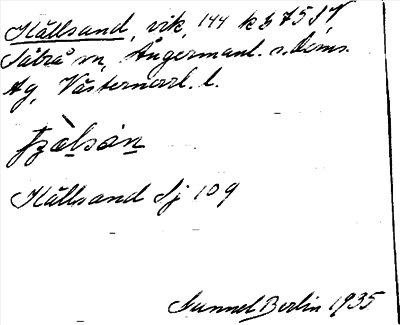 Källsand, vik, 144 kb 75 SV
Säbrå sn, Ångermanl. s. Doms.
Ag, Västernorrl. l.
Källsand Sj 109
Gunnel Berlin 1935